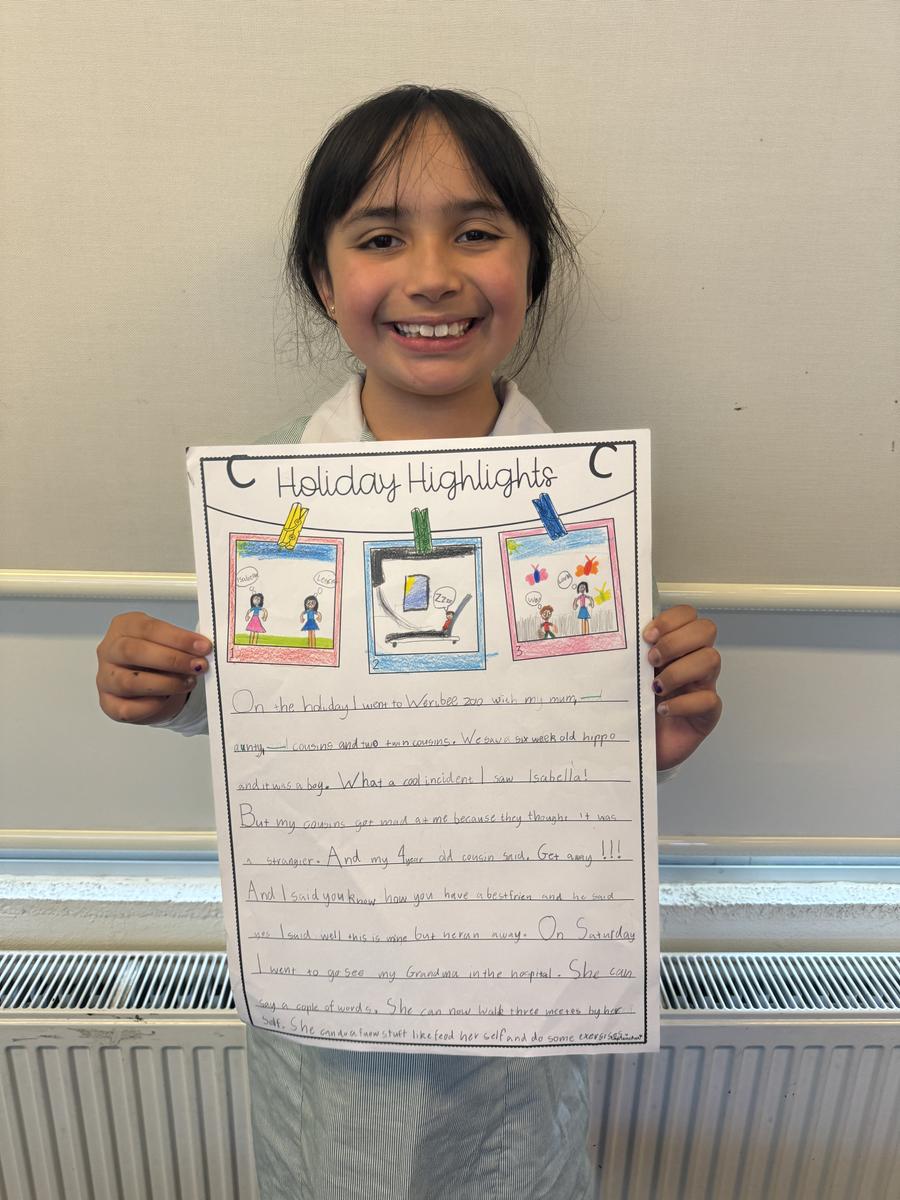 C Holiday Highlights C
Isabella
Leticia
Zzzz
Why
1.
2
3.
On the holiday I went to Weribee zoo with my mum,
aunty, cousins and two twin cousins. We saw a six week old hippo
and it was a boy. What a cool incident I saw Isabella!
But my cousins get mad at me because they thought it was
a strangier. And my 4 year old cousin said. Get away !!!
And I said you know how you have a bestfrien and he said
yes I said well this is mine but he ran away. On Saturday
I went to go see my Grandma in the hospital. She can
say a cople of words. She can now walk three meetes by her
self. She can do a fnow stuff like feed her self and do some exersises